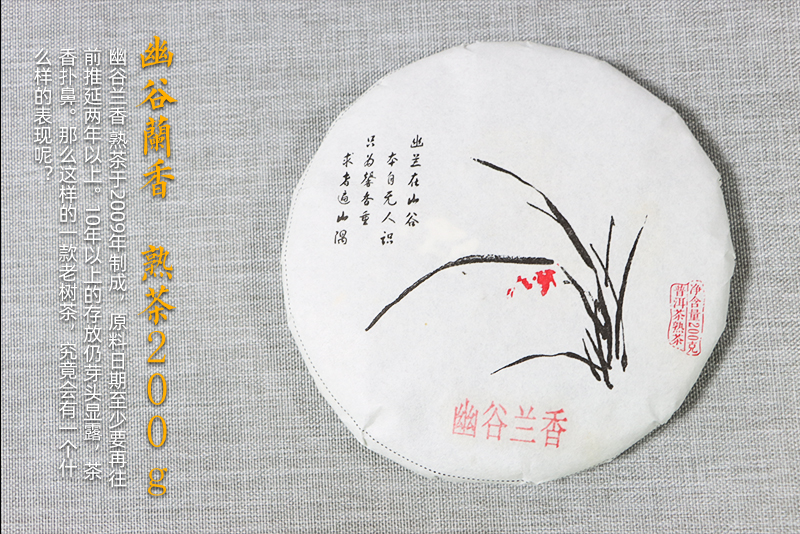 幽谷蘭香 熟茶200g
幽谷兰香 熟茶于2009年制成，原料日期至少要再往
前推延两年以上。10年以上的存放仍芽头显露，茶
香扑鼻。那么这样的一款老树茶，究竟会有一个什
么样的表现呢？
幽兰在山谷
本自无人识
只为馨香重
求者遍山隅
净含量200克
普洱茶熟茶
幽谷兰香